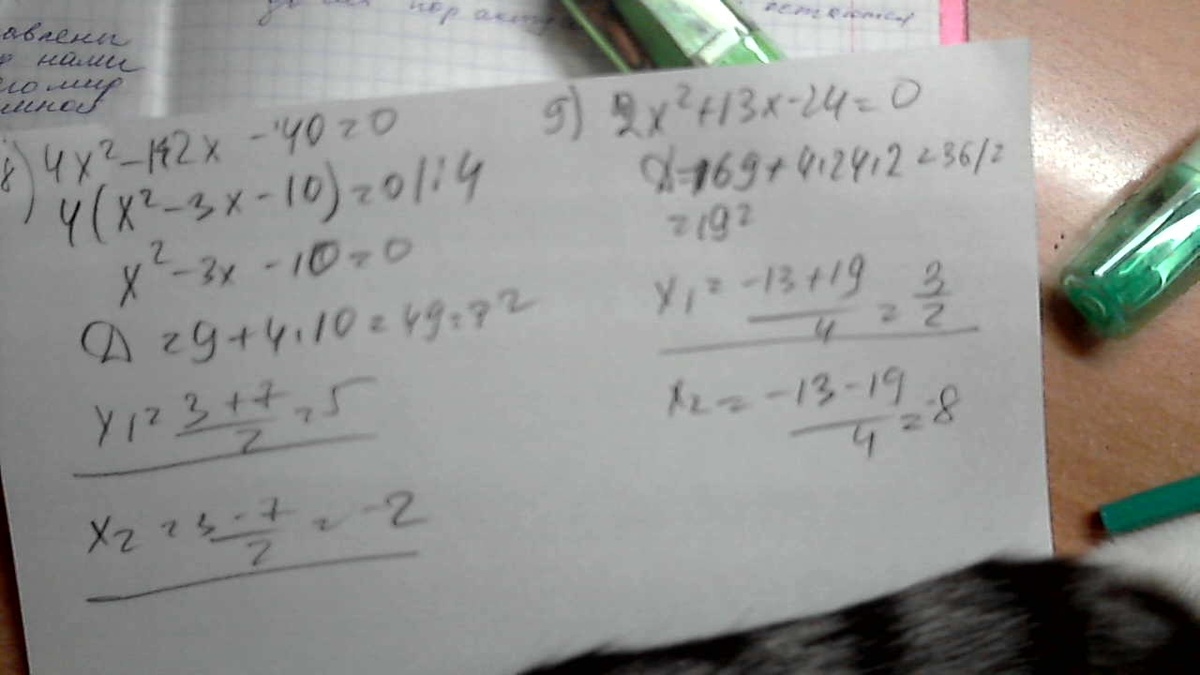 авлены
нами
мной
до сих пор
остаются
8) 4x² - 12x - 40 = 0
4(x² - 3x - 10) = 0 | : 4
x² - 3x - 10 = 0
D = 9 + 4·10 = 49 = 7²
x₁ = (3+7)/2 = 5
x₂ = (3-7)/2 = -2
9) 2x² + 13x - 24 = 0
D = 169 + 4·24·2 = 361 =
= 19²
x₁ = (-13+19)/4 = 3/2
x₂ = (-13-19)/4 = -8